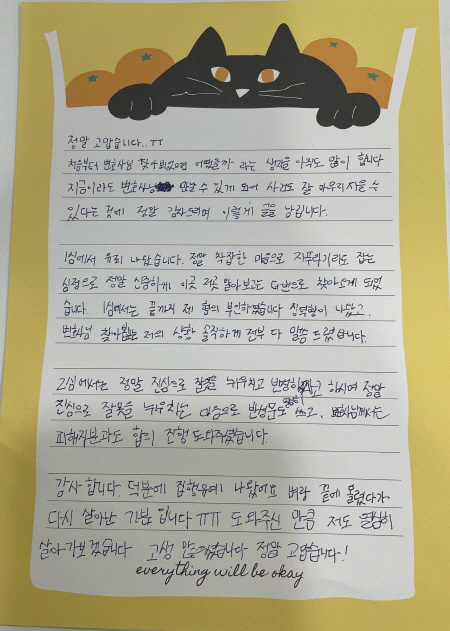 정말 고맙습니다..ㅠㅠ
처음부터 변호사님 찾아뵈었으면 어땠을까 라는 생각을 아직도 많이 합니다
지금이라도 변호사님 만날 수 있게 되어 사건도 잘 마무리 지을 수
있다는 것에 정말 감사드리며 이렇게 글을 남깁니다.
1심에서 유죄 나왔습니다. 정말 착잡한 마음으로 지푸라기라도 잡는
심정으로 정말 신중하게 이곳 저곳 알아보고는 찾아오게 되었
습니다. 1심에서는 끝까지 제 혐의 부인하였습니다 징역형이 나왔고,
변호사님 찾아뵙고는 저의 상황 솔직하게 전부 다 말씀 드렸습니다.
2심에서는 정말 진심으로 잘못을 뉘우치고 반성하라고 하시며 정말
진심으로 잘못을 뉘우치는 마음으로 반성문도 쓰고, 변호사님께서는
피해자분과도 합의 진행 도와주셨습니다.
감사합니다. 덕분에 집행유예 나왔어요 벼랑 끝에 몰렸다가
다시 살아난 기분 입니다 ㅠㅠ 도와주신 만큼 저도 열심히
살아가보겠습니다 고생 많으셨습니다 정말 고맙습니다!
everything will be okay